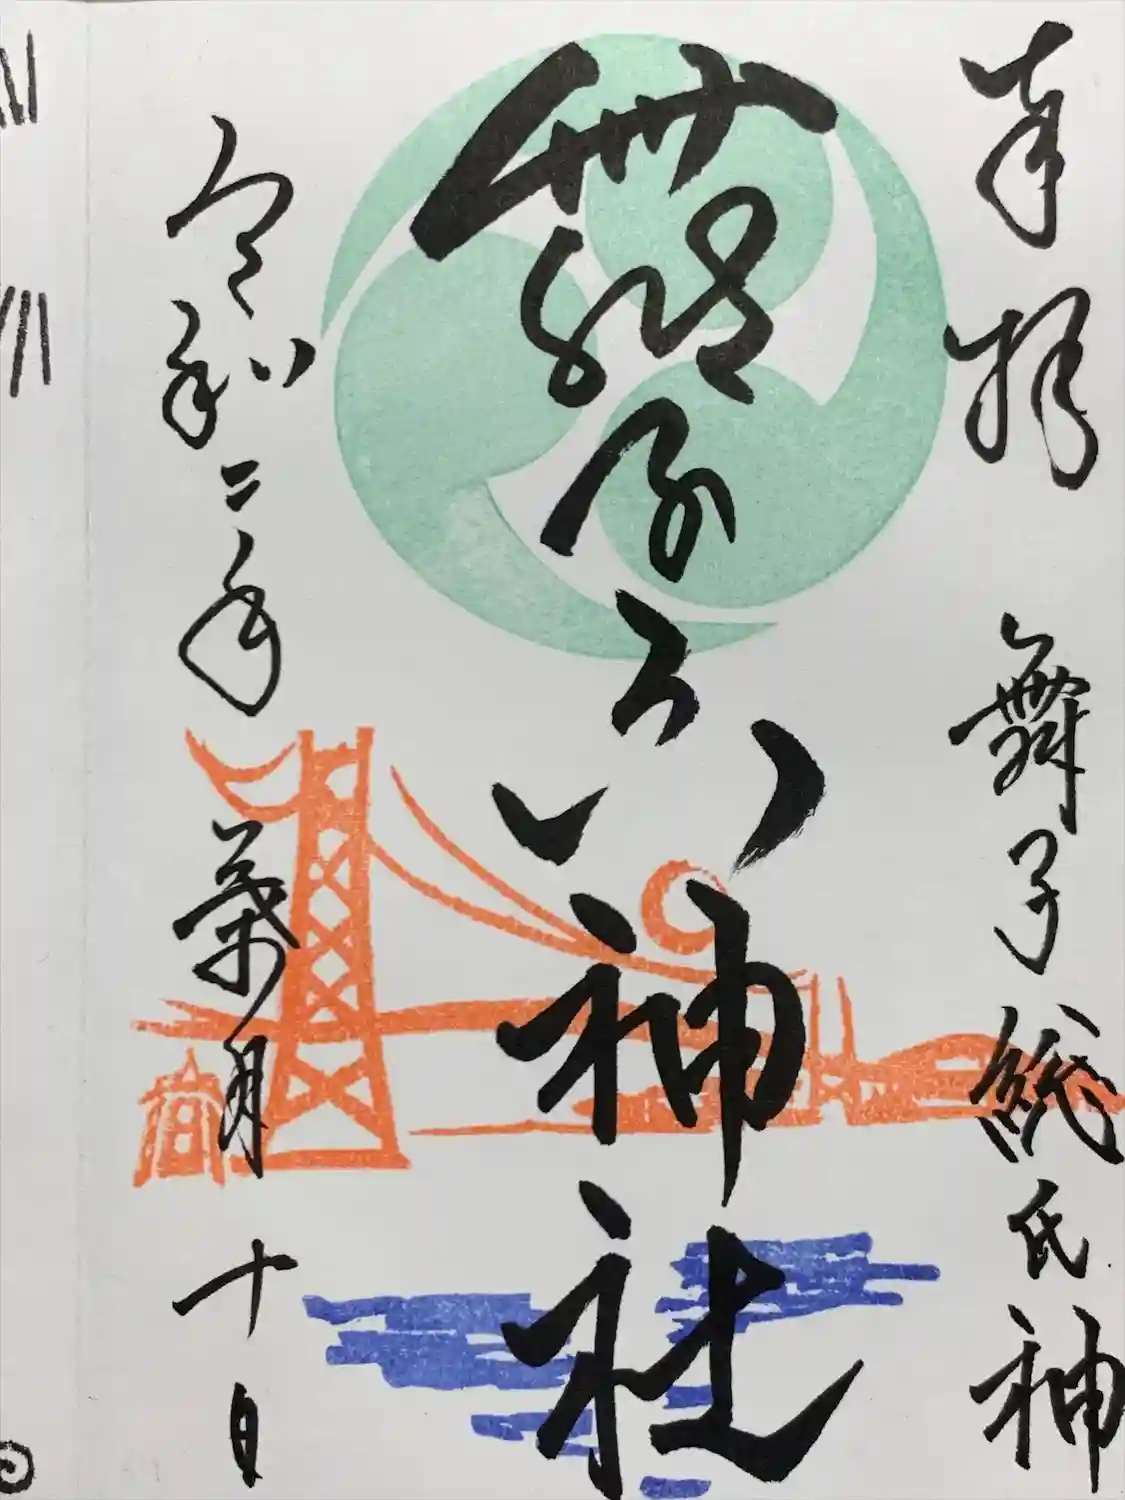 奉拝　舞子総氏神
舞子六神社
令和二年　葉月　十日